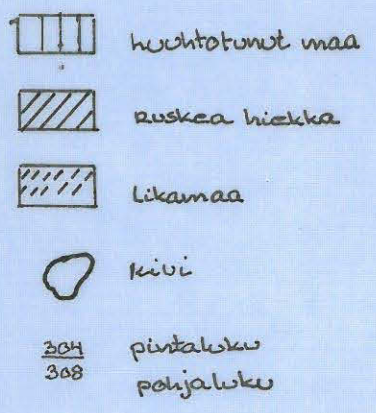 huuhtotunut maa
Ruskea hiekka
Likamaa
kivi
304 pintaluku
308 pohjaluku